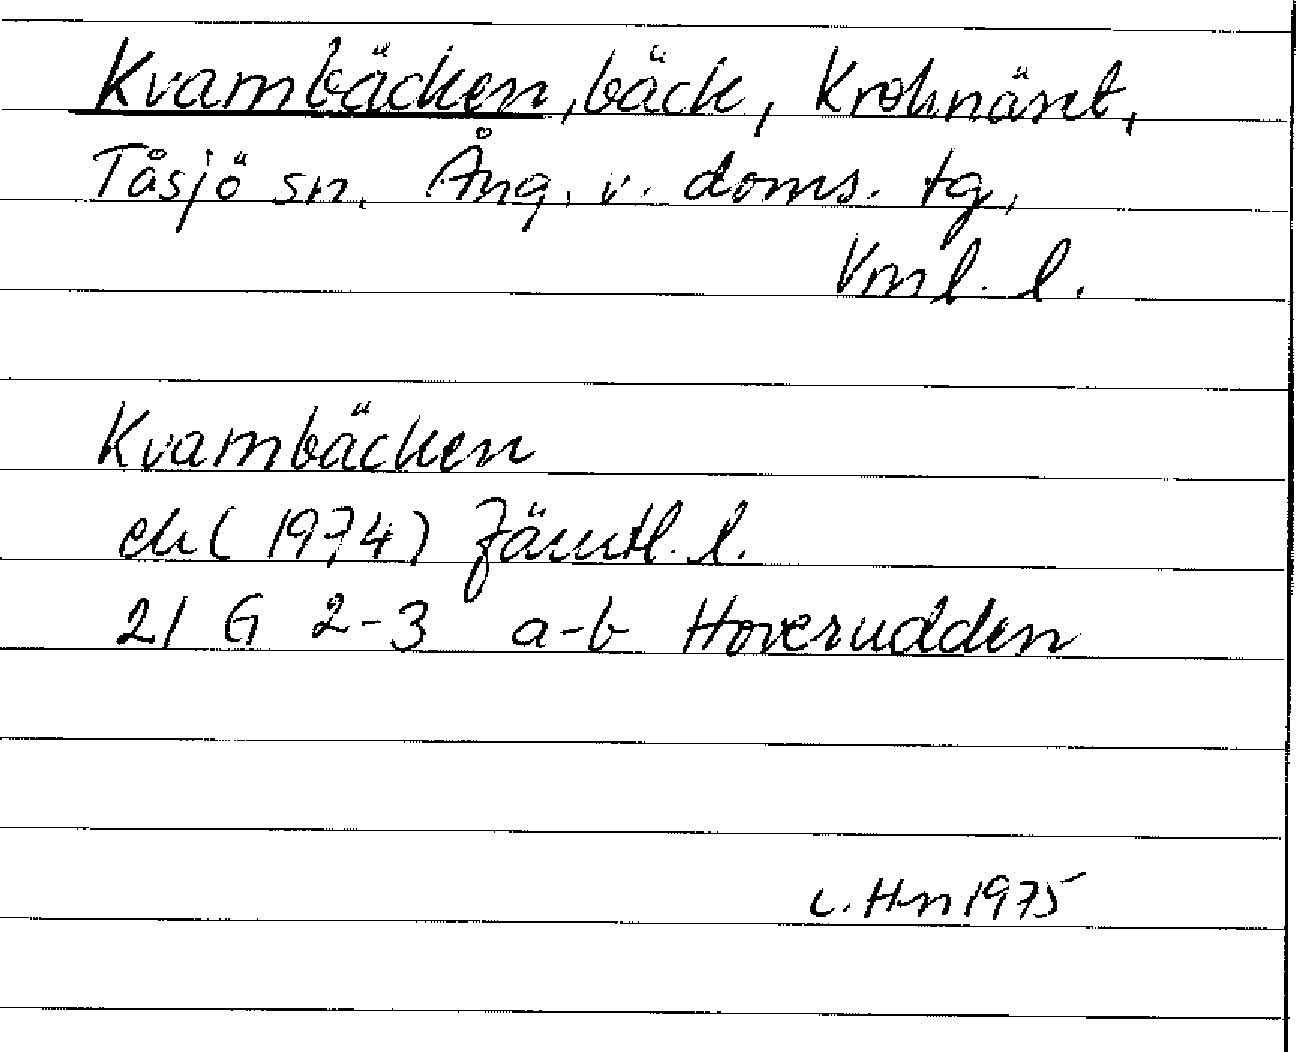 Kvambäcken, bäck, Kroknäset,
Tåsjö sn. Ång. v. doms. tg,
Vnl. l.
Kvambäcken
ek (1974) Jämtl. l.
21 G 2-3 a-b Hoverudden
c. Hn 1975